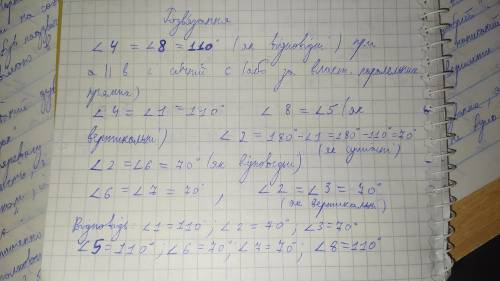 Розвязання
∠4 = ∠8 = 110° (як відповідні) при
a || b і січній c (або за власт. паралельних
прямих)
∠4 = ∠1 = 110° ∠8 = ∠5 (як
вертикальні) ∠2 = 180° - ∠1 = 180° - 110° = 70°
∠2 = ∠6 = 70° (як відповідні) (як суміжні)
∠6 = ∠7 = 70° , ∠2 = ∠3 = 70°
(як вертикальні)
Відповідь: ∠1 = 110°; ∠2 = 70°; ∠3 = 70°
∠5 = 110°; ∠6 = 70°; ∠7 = 70°; ∠8 = 110°